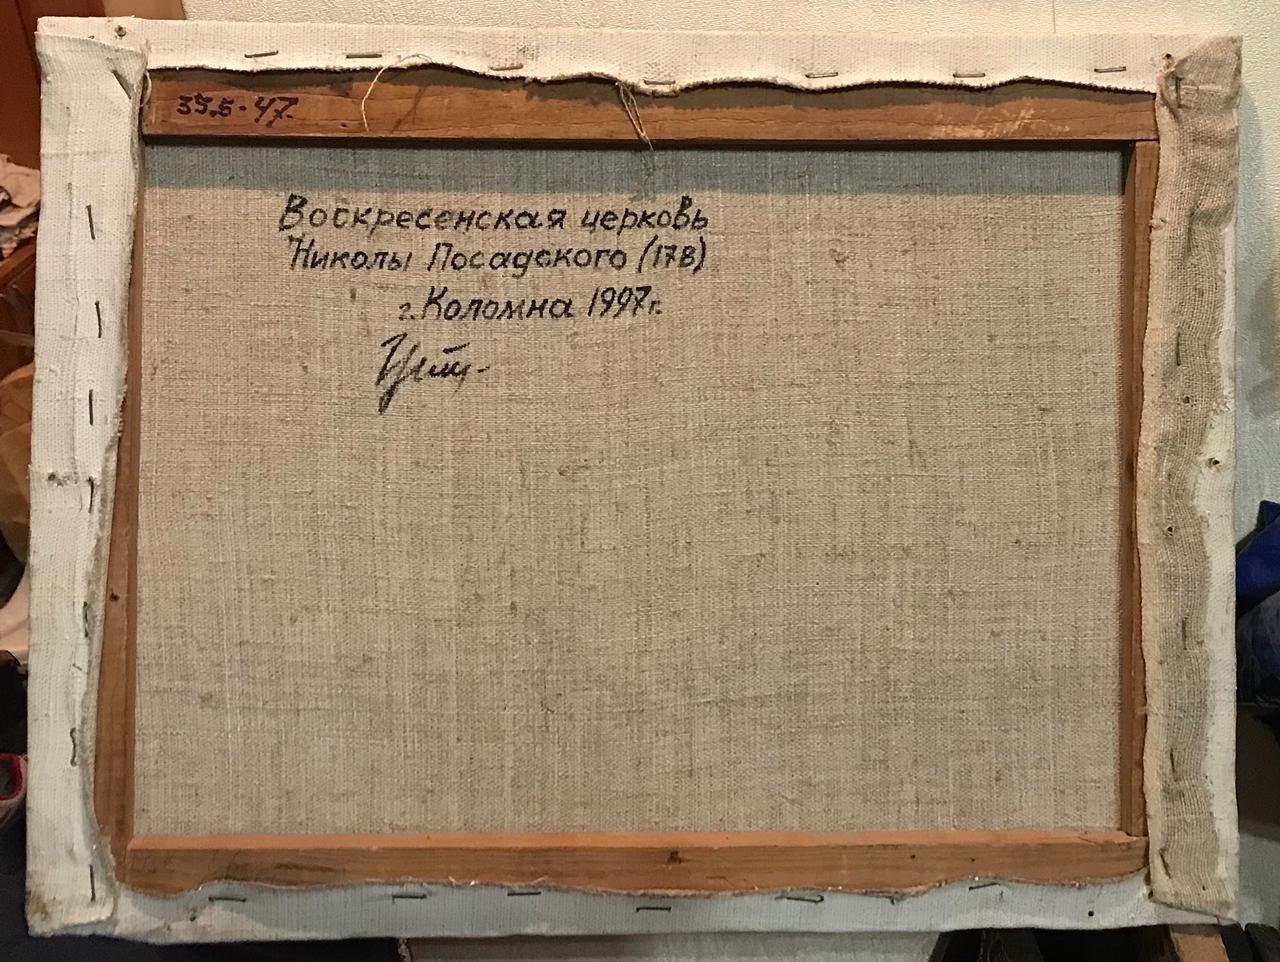 35,5-47.
Воскресенская церковь
Николы Посадского (17В)
г. Коломна 1997г.